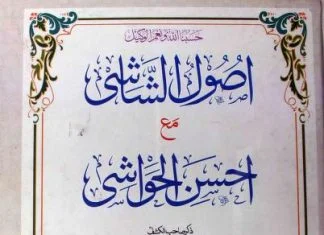 حسبنا الله ونعم الوكيل
اُصُول الشَّاشی
مَع
احسن الحواشی